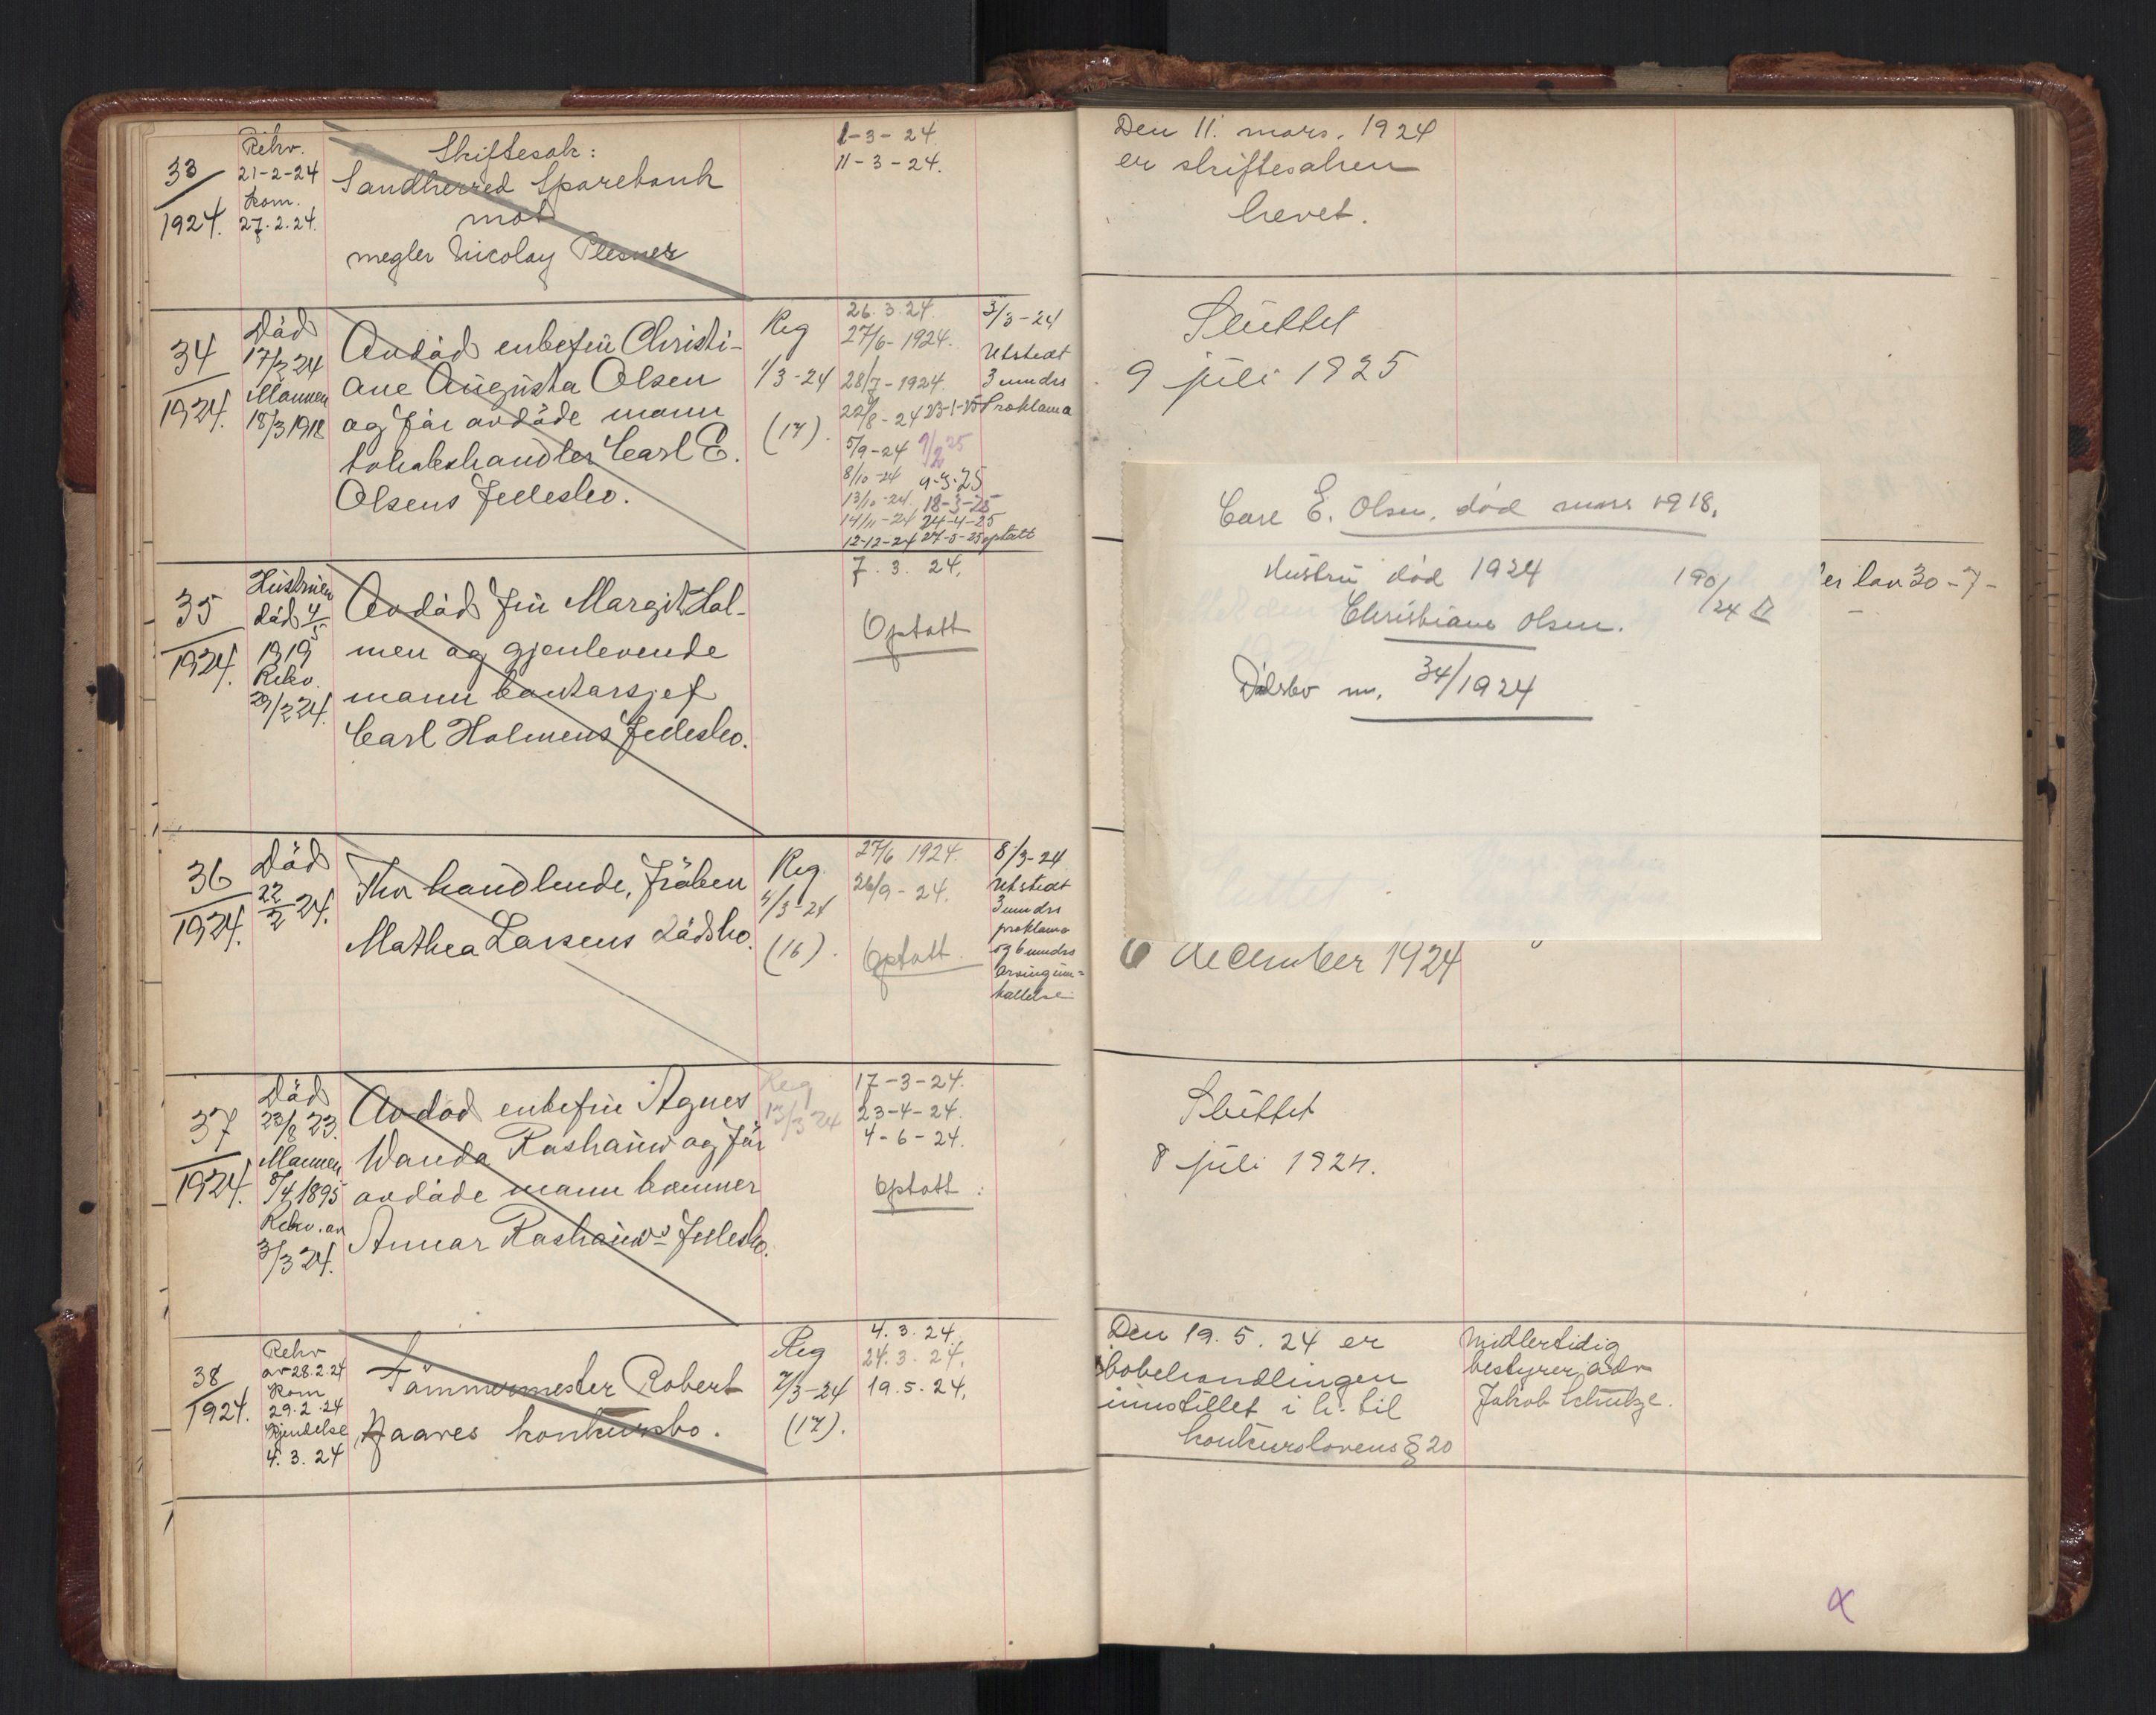 33
1924.
Rekv.
21-2-24
Kom.
27.2.24.
Skiftesak:
Sandherred Sparebank
mot
megler Nicolay Plesner
1-3-24.
11-3-24.
Den 11. mars. 1924
er skiftesaken
hevet.
34
1924.
Død
17/2 24
Mannen
18/3 1918
Avdød enkefru Christi-
ane Augusta Olsen
og før avdøde mann
tobakshandler Carl E.
Olsens fellesbo.
Reg
1/3-24
(17).
26.3.24.
27/6-1924.
28/7-1924.
22/8-24 23-1-25
5/9-24
8/10-24 9-3-25
13/10-24 18-3-25
14/11-24 24-4-25
12-12-24 27-5-25 optatt
3/3-24
Utstedt
3 mndrs
Proklama
Sluttet
9 juli 1925
35
1924.
Hustruen
død 4/5
1919
Rekv.
29/2 24.
Avdød fru Margit Hol-
men og gjenlevende
mann kontorsjef
Carl Holmens fellesbo.
7.3.24.
Optatt
30-7-
Carl E. Olsen, død mars 1918.
Hustru død 1924
Christiane Olsen.
190/24 II
Dødsbo nr. 34/1924
36
1924.
Død
22/2 24.
Thv handlende, frøken
Mathea Larsens dødsbo.
Reg.
4/3-24
(16).
27/6 1924.
26/9-24.
Optatt.
8/3-24
Utstedt
3 mndrs
proklama
og 6 mndrs
arvinginn=
kallelse
6 december 1924
37
1924.
Død
23/8 23.
Mannen
8/4 1895
Rekv. av
3/3 24.
Avdød enkefru Agnes
Wanda Rashauw og før
avdøde mann kemner
Annar Rashauws fellesbo.
Reg
13/3 24
17-3-24.
23-4-24.
4-6-24.
Optatt:
Sluttet
8 juli 1924.
38
1924.
Rekv
av 28.2.24
Kom
29.2.24
Kjendelse
4.3.24
Tømmermester Robert
Haares konkursbo.
Reg
7/3-24
(17).
4.3.24.
24.3.24.
19.5.24.
Den 19.5.24 er
bobehandlingen
innstillet i h. til
konkurslovens § 20
Midlertidig
bestyrer, adv
Jakob Schutze.
x